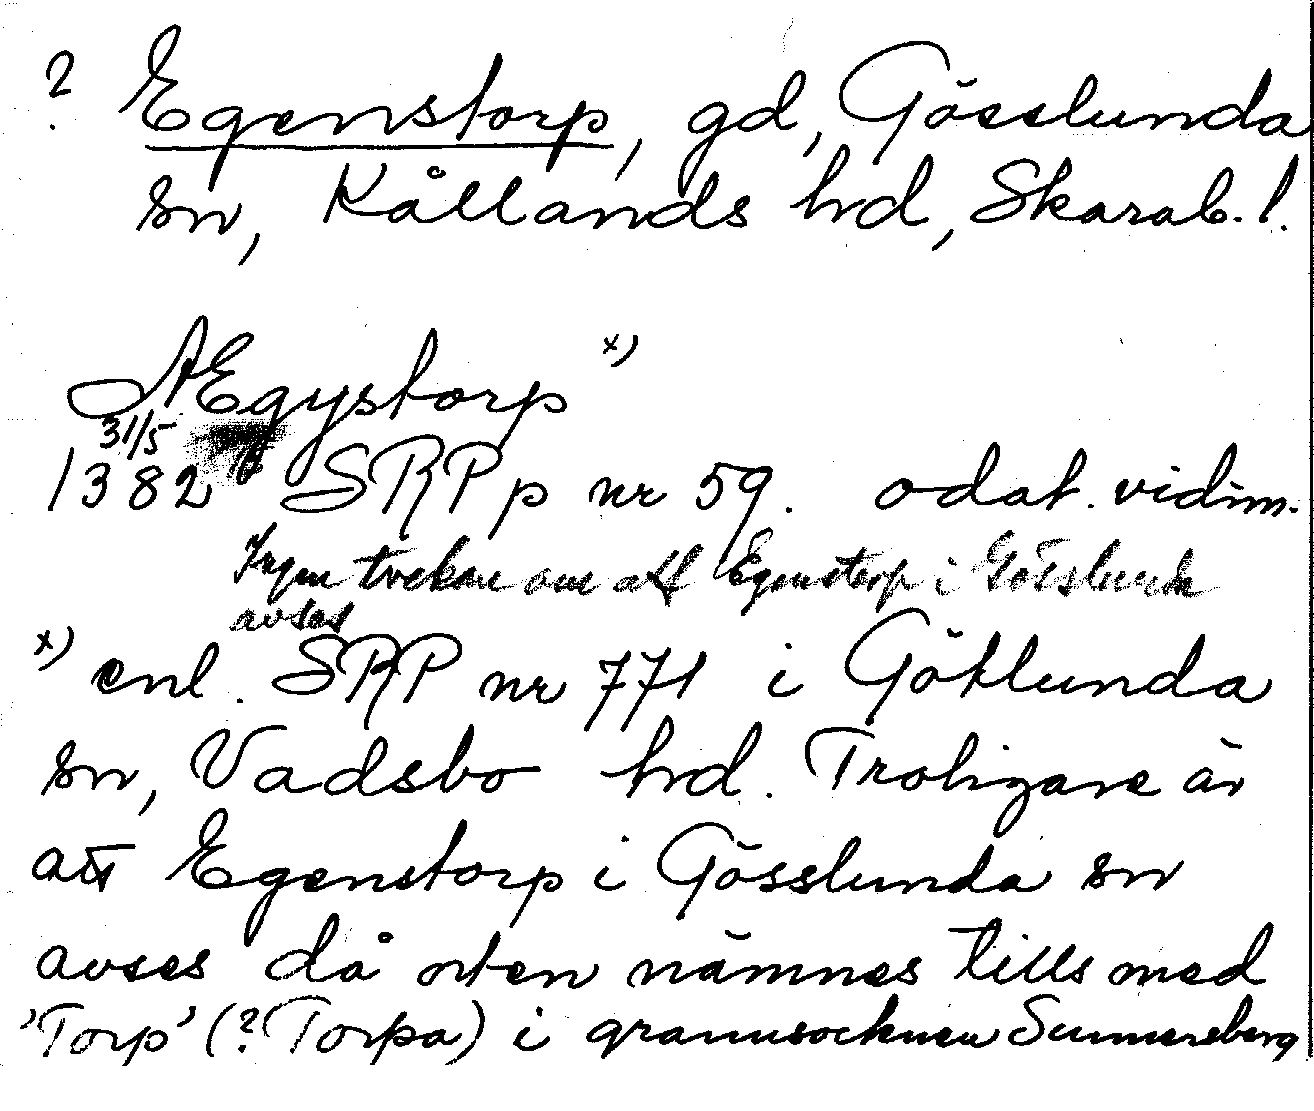 ? Egenstorp, gd, Gösslunda
sn, Kållands hd, Skarab. l.
AEgystorp x)
31/5
1382 SRPp nr 59. odat. vidim.
Ingen tvekan om att Egenstorp i Gösslunda
avses
x) enl. SRP nr 771 i Götlunda
sn, Vadsbo hd. Troligare är
att Egenstorp i Gösslunda sn
avses då orten nämnes tills med
'Torp' (? Torpa) i grannsocknen Sunnersberg